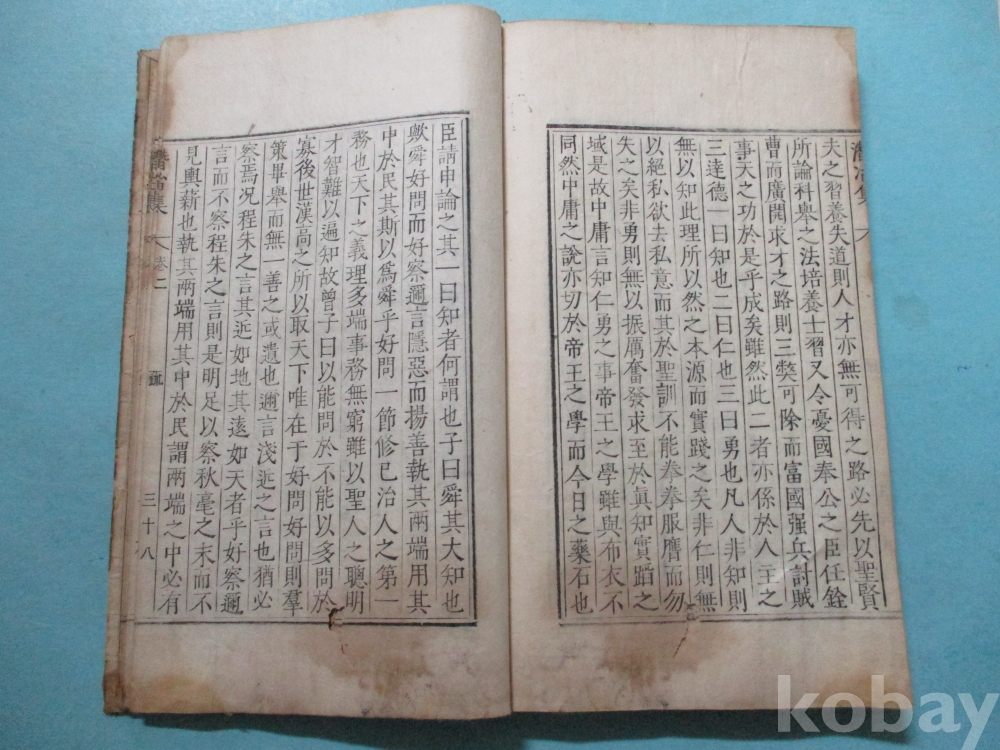 夫之習養失道則人才亦無可得之路必先以聖賢
所論科舉之法培養士習又令憂國奉公之臣任銓
曹而廣開求才之路則三獘可除而富國强兵討賊
事天之功於是乎成矣雖然此二者亦係於人主之
三達德一曰知也二曰仁也三曰勇也凡人非知則
無以知此理所以然之本源而實踐之矣非仁則無
以絕私欲去私意而其於聖訓不能拳拳服膺而勿
失之矣非勇則無以振厲奮發求至於眞知實蹈之
域是故中庸言知仁勇之事帝王之學雖與布衣不
同然中庸之說亦切於帝王之學而今日之藥石也
臣請申論之其一曰知者何謂也子曰舜其大知也
歟舜好問而好察邇言隱惡而揚善執其兩端用其
中於民其斯以爲舜乎好問一節修已治人之第一
務也天下之義理多端事務無窮雖以聖人之聰明
才智難以遍知故曾子曰以能問於不能以多問於
寡後世漢高之所以取天下唯在于好問好問則羣
策畢舉而無一善之或遺也邇言淺近之言也猶必
察焉况程朱之言其近如地其遠如天者乎好察邇
言而不察程朱之言則是明足以察秋毫之末而不
見輿薪也執其兩端用其中於民謂兩端之中必有
集 卷二 疏 三十八
kobay